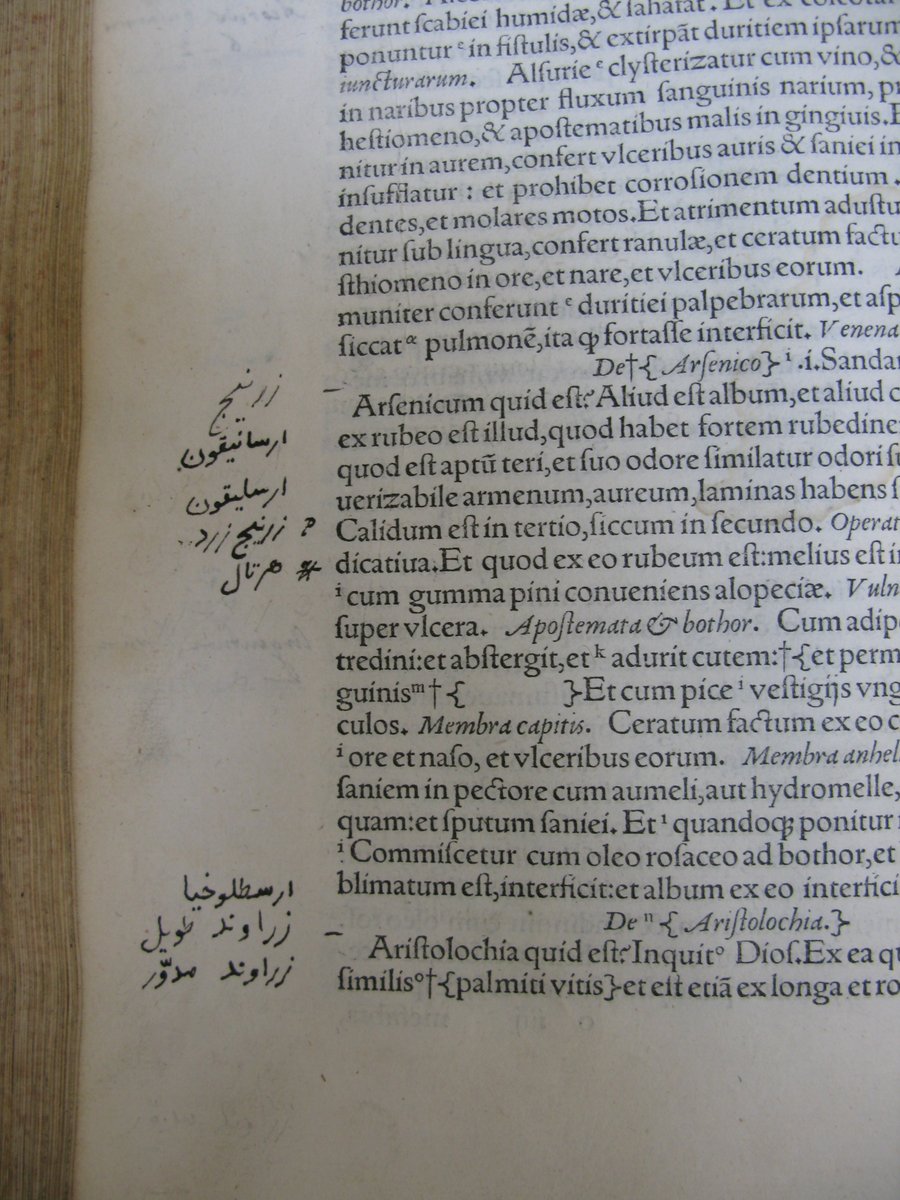 ferunt ſcabiei humidæ,& ſahafat. Et ex
ponuntur ᵉ in fiſtulis,& extirpāt duritiem ipſarum
iuncturarum. Alſurie ᵉ clyſterizatur cum vino,&
in naribus propter fluxum ſanguinis narium,
heſtiomeno,& apoſtematibus malis in gingiuis.
nitur in aurem,confert vlceribus auris & ſaniei in
inſufflatur : et prohibet corroſionem dentium .
dentes,et molares motos.Et atrimentum aduſtu
nitur ſub lingua,confert ranulæ,et ceratum factu
ſthiomeno in ore,et nare,et vlceribus eorum.
muniter conferunt ᵉ duritiei palpebrarum,et aſp
ſiccat ᵃ pulmonē,ita ꝙ fortaſſe interficit. Venena
De†{ Arſenico} ⁱ .i.Sandar
زرنيج
Arſenicum quid eſt? Aliud eſt album,et aliud c
ارسانيقون
ex rubeo eſt illud,quod habet fortem rubedine
quod eſt aptū teri,et ſuo odore ſimilatur odori ſu
ارساليقون
uerizabile armenum,aureum,laminas habens ſ
? زرنيج زرد
Calidum eſt in tertio,ſiccum in ſecundo. Operat
* هرتال
dicatiua.Et quod ex eo rubeum eſt:melius eſt i
ⁱ cum gumma pini conueniens alopeciæ. Vuln
ſuper vlcera. Apoſtemata & bothor. Cum adip
tredini:et abſtergit,et ᵏ adurit cutem:†{et perm
guinis ᵐ †{ }Et cum pice ⁱ veſtigijs vng
culos. Membra capitis. Ceratum factum ex eo c
ⁱ ore et naſo, et vlceribus eorum. Membra anhel
ſaniem in pectore cum aumeli,aut hydromelle,
quam:et ſputum ſaniei. Et ˡ quandoq; ponitur
ⁱ Commiſcetur cum oleo roſaceo ad bothor,et
ارسطلوخيا
blimatum eſt,interficit:et album ex eo interfici
زراوند طويل
De ⁿ { Ariſtolochia.}
Ariſtolochia quid eſt? Inquit ᵒ Dioſ.Ex ea qu
زراوند مدوّر
ſimilis ᵒ †{palmiti vitis}et eſt etiā ex longa et ro